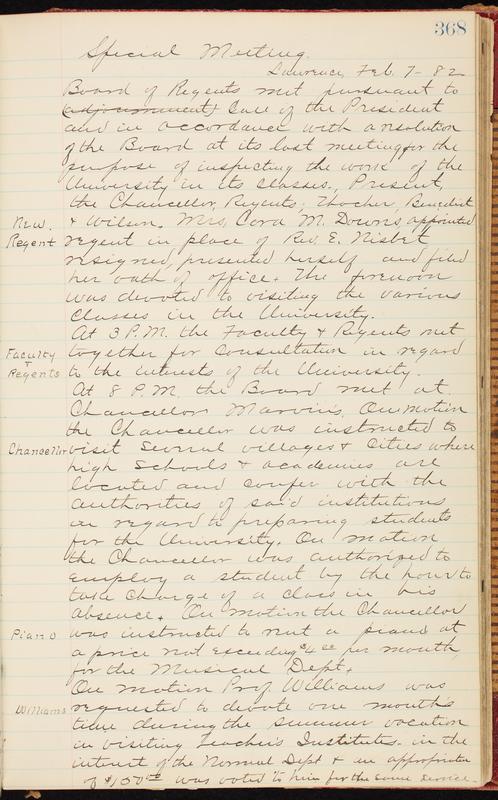 368
Special Meeting.
Lawrence, Feb. 7 - 82
Board of Regents met pursuant to
(adjournment) Call of the President
and in accordance with a resolution
of the Board at its last meeting for the
purpose of inspecting the work of the
University in its classes. Present,
the Chancellor, Regents, Thacher, Benedict
New & Wilson. Mrs. Cora M. Downs, appointed
Regent regent in place of Rev. E. Nisbet
resigned, presented herself and filed
her oath of office. The forenoon
was devoted to visiting the various
classes in the University.
At 3 P.M. the Faculty & Regents met
Faculty together for consultation in regard
+ Regents to the interests of the University.
At 8 P.M. the Board met at
Chancellor Marvin's. On motion
the Chancellor was instructed to
Chancellor visit several villages & cities where
high schools & academies are
located and confer with the
authorities of said institutions
in regard to preparing students
for the University. On motion
the Chancellor was authorized to
employ a student by the hour to
take charge of a class in his
absence. On motion the Chancellor
Piano was instructed to rent a piano at
a price not exceeding $4.00 per month,
for the Musical Dept.
On motion Prof. Williams was
Williams requested to devote one month's
time during the summer vacation
in visiting Teacher's Institutes in the
interest of the Normal Dept & an appropriation
of $150.00 was voted to him for the same service.